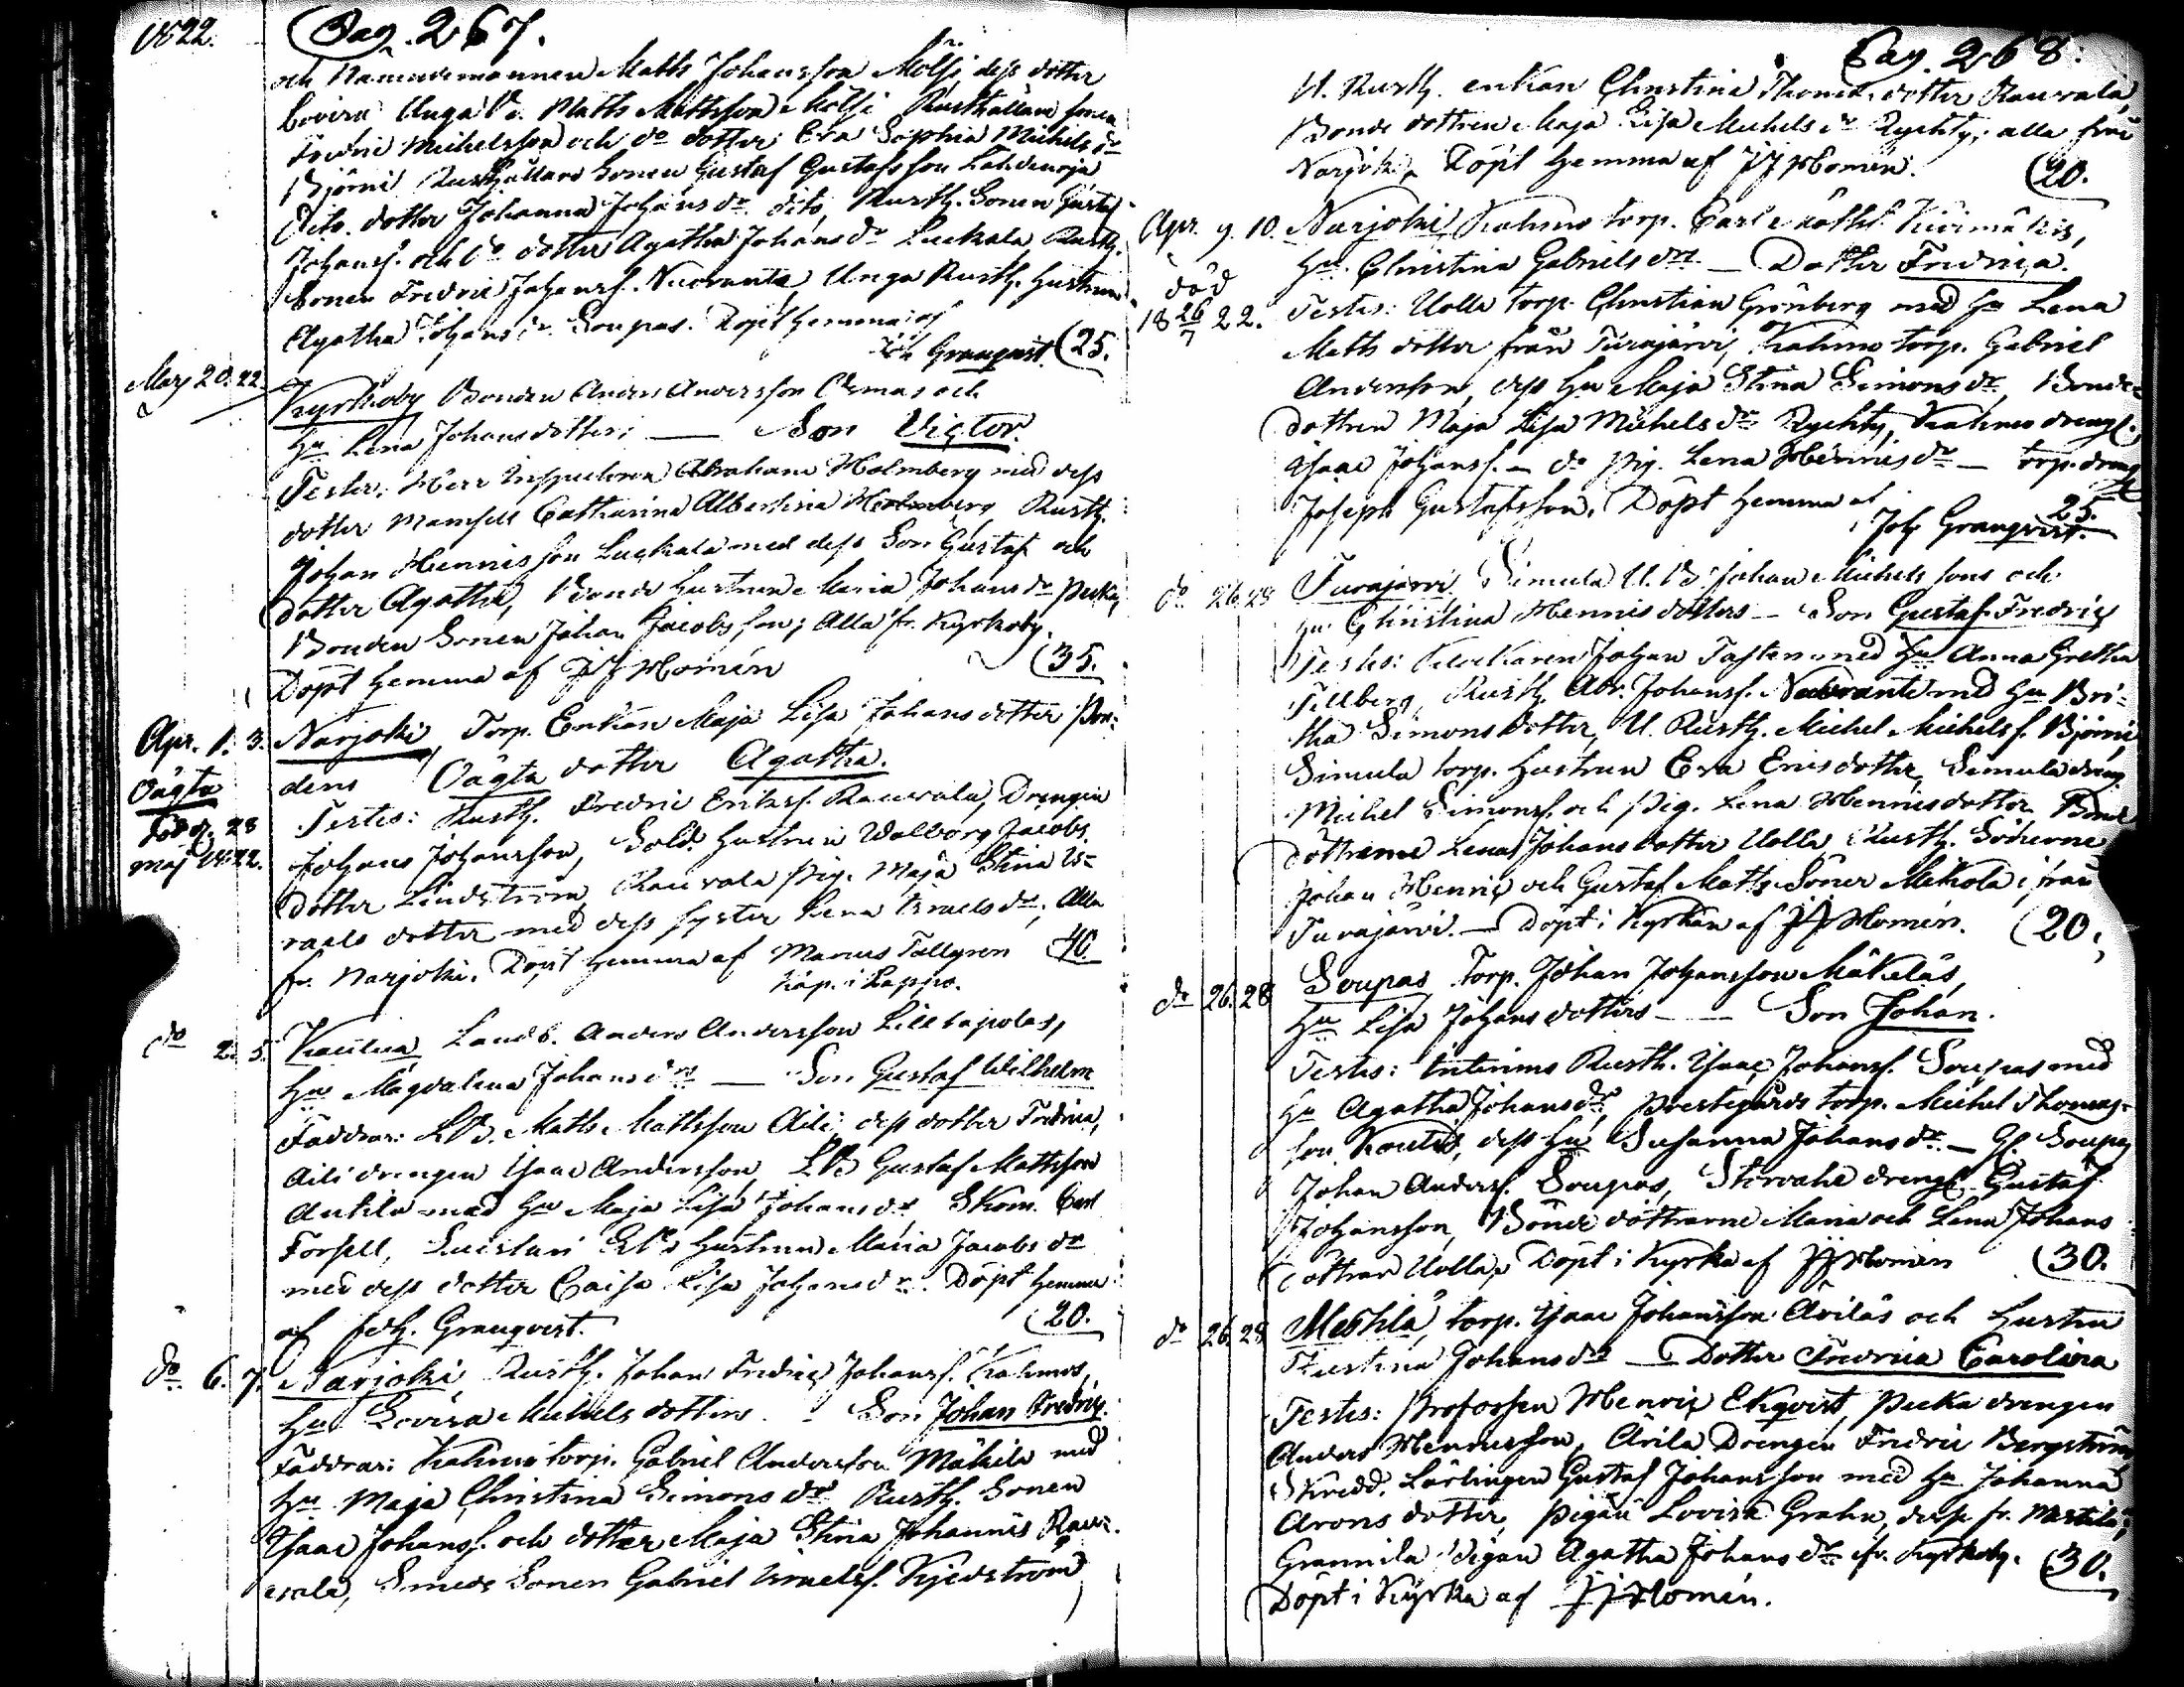 1822.
Pag. 267.
och Nämndemannen Matts Johansson Molsi, dess dotter
Lovisa Unga B. Matts Mattsson Molsi Rusthållare sonen
Fredric Michelsson och do dotter Eva Sophia Michels dr
Björni Rusthållare Sonen Gustaf Gustafsson
dito dotter Johanna Johans dr dito, Rusth. Sonen Gustaf
Johanss. och do dotter Agatha Johans dr Luckala Rusth.
Sonen Fredric Johanss. Nuoranta, Unga Rusth. Hustrun
Agatha Johans dr Soupas. Döpt hemma af
Joh Granqvist. (25.
Mars 20. 22. Kyrkoby Bonden Anders Andersson och
Hu Lena Johansdotter; — Son Victor.
Testes: Herr Inspectoren Abraham Holmberg med dess
dotter Mamsell Catharina Albertina Holmberg Rusth.
Johan Hennisson Luckala med dess Son Gustaf och
dotter Agatha, Bonde Hustrun Maria Johans dr Pecka,
Bonden Sonen Johan Jacobsson; Alla fr. Kyrkoby.
Döpt hemma af JJ Homén (35.
Apr. 1. 3. Narjoki, Torp. Enkan Maja Lisa Johans dotter
Oägta
död d. 28
maj 1822.
dens Oägta dotter Agatha.
Testes: Rusth. Fredric Erikss. Rauvala, Drengen
Johans Johansson, Sold. Hustrun Walborg Jacobs
dotter Lindström, Rauvala Pig. Maja Stina Is-
raels dotter med dess syster Lena Israels dr, Alla
fr. Narjoki. Döpt hemma af Marcus Tallgren (40.
Kap. i Lappo.
do 2. 5. Landb. Anders Andersson
Hu Magdalena Johans drs — Son Gustaf Wilhelm
Faddrar: LB. Matts Mattsson Äili, dess dotter Fredrica,
Äili drengen Isaac Andersson, LB Gustaf Mattsson
Anttila med Hu Maja Lisa Johans dr, Skom. Carl
Forsell, Hustrun Maria Jacobs dr
med dess dotter Caisa Lisa Johans dr. Döpt hemma
af Joh. Granqvist. (20.
do 6. 7. Narjoki, Rusth. Johan Fredric Johanss. Kahmos,
Hu Lovisa Michels dotters — Son Johan Fredric.
Faddrar: Kahmo torp. Gabriel Andersson Mäkilä med
Hu Maja Christina Simons dr Rusth. Sonen
Isaac Johanss. och dotter Maja Stina Johannis Rau-
vala, Smeds Sonen Gabriel Kjedström
Pag. 268.
U. Rusth. enkan Christina Thomæ dotter Rauvala,
Bonde dottren Maja Lisa Michels dr Rychty; alla från
Narjoki, Döpt hemma af JJ Homén. (20.
Apr. 9. 10. Narjoki, Kahmo torp. Carl
död
18 26/7 22.
Hu. Christina Gabriels drs — Dotter Fredrica.
Testes: Uolla torp. Christian Grönberg med Hu Lena
Matts dotter från Turajärvi, Kahmo torp. Gabriel
Andersson, dess Hu Maja Stina Simons dr, Bonde-
dottren Maja Lisa Michels dr Rychty, Kahmo dreng.
Isaac Johanss. — do Pig. Lena Hennis dr — torp. dreng
Joseph Gustafsson. Döpt hemma af
Joh Granqvist. 25.
do 26. 28 Turajärvi, Simula U. B. Johan Michels sons och
Hu Christina Hennis dotters — Son Gustaf Fredric
Testes: Klockaren Johan Tasten med Hu Anna Gretha
Tillberg, Rusth. Abr. Johanss. Nuoranta med Hu Bri-
tha Simons dotter, U. Rusth. Michel Michelss. Björni
Simula torp. hustrun Eva Ericsdotter, Simula dreng
Michel Simonss. och Pig. Lena Hennisdotter Bonde
döttrarne Lena Johans dotter Uolla Rusth. Sönerne
Johan Henric och Gustaf Matts Söner Mikola; från
Turajärvi. — Döpt i Kyrkan af JJ Homén. (20.
do 26. 28 Soupas Torp. Johan Johansson Mäkeläs,
Hu Lisa Johans dotters — Son Johan.
Testes: Interims Rusth. Isaac Johanss. Soupas med
Hu Agatha Johans dr, Prestegårds torp. Michel Thomas-
son dess Hu Susanna Johans dr — Gl. Soupas
Johan Anderss. Soupas, dreng. Gustaf
Johansson, Bonde döttrarne Maria och Lena Johans
döttrar Uolla, Döpt i Kyrka af JJ Homén (30.
do 26. 28 Mestilä, torp. Isaac Johansson Äviläs och Hustru
Justina Johans drs — Dotter Fredrica Carolina
Testes: Professen Henric Ekqvist, Pecka drengen
Anders Henricsson, Ävilä Drengen Fredric Bergström,
Skredd. Lärlingen Gustaf Johansson med Hu Johanna
Arons dotter, Pigan Lovisa Grahn, dess fr. Mestilä;
Grannila Pigan Agatha Johans dr fr. Kyrkoby. (30.
Döpt i Kyrka af JJ Homén.